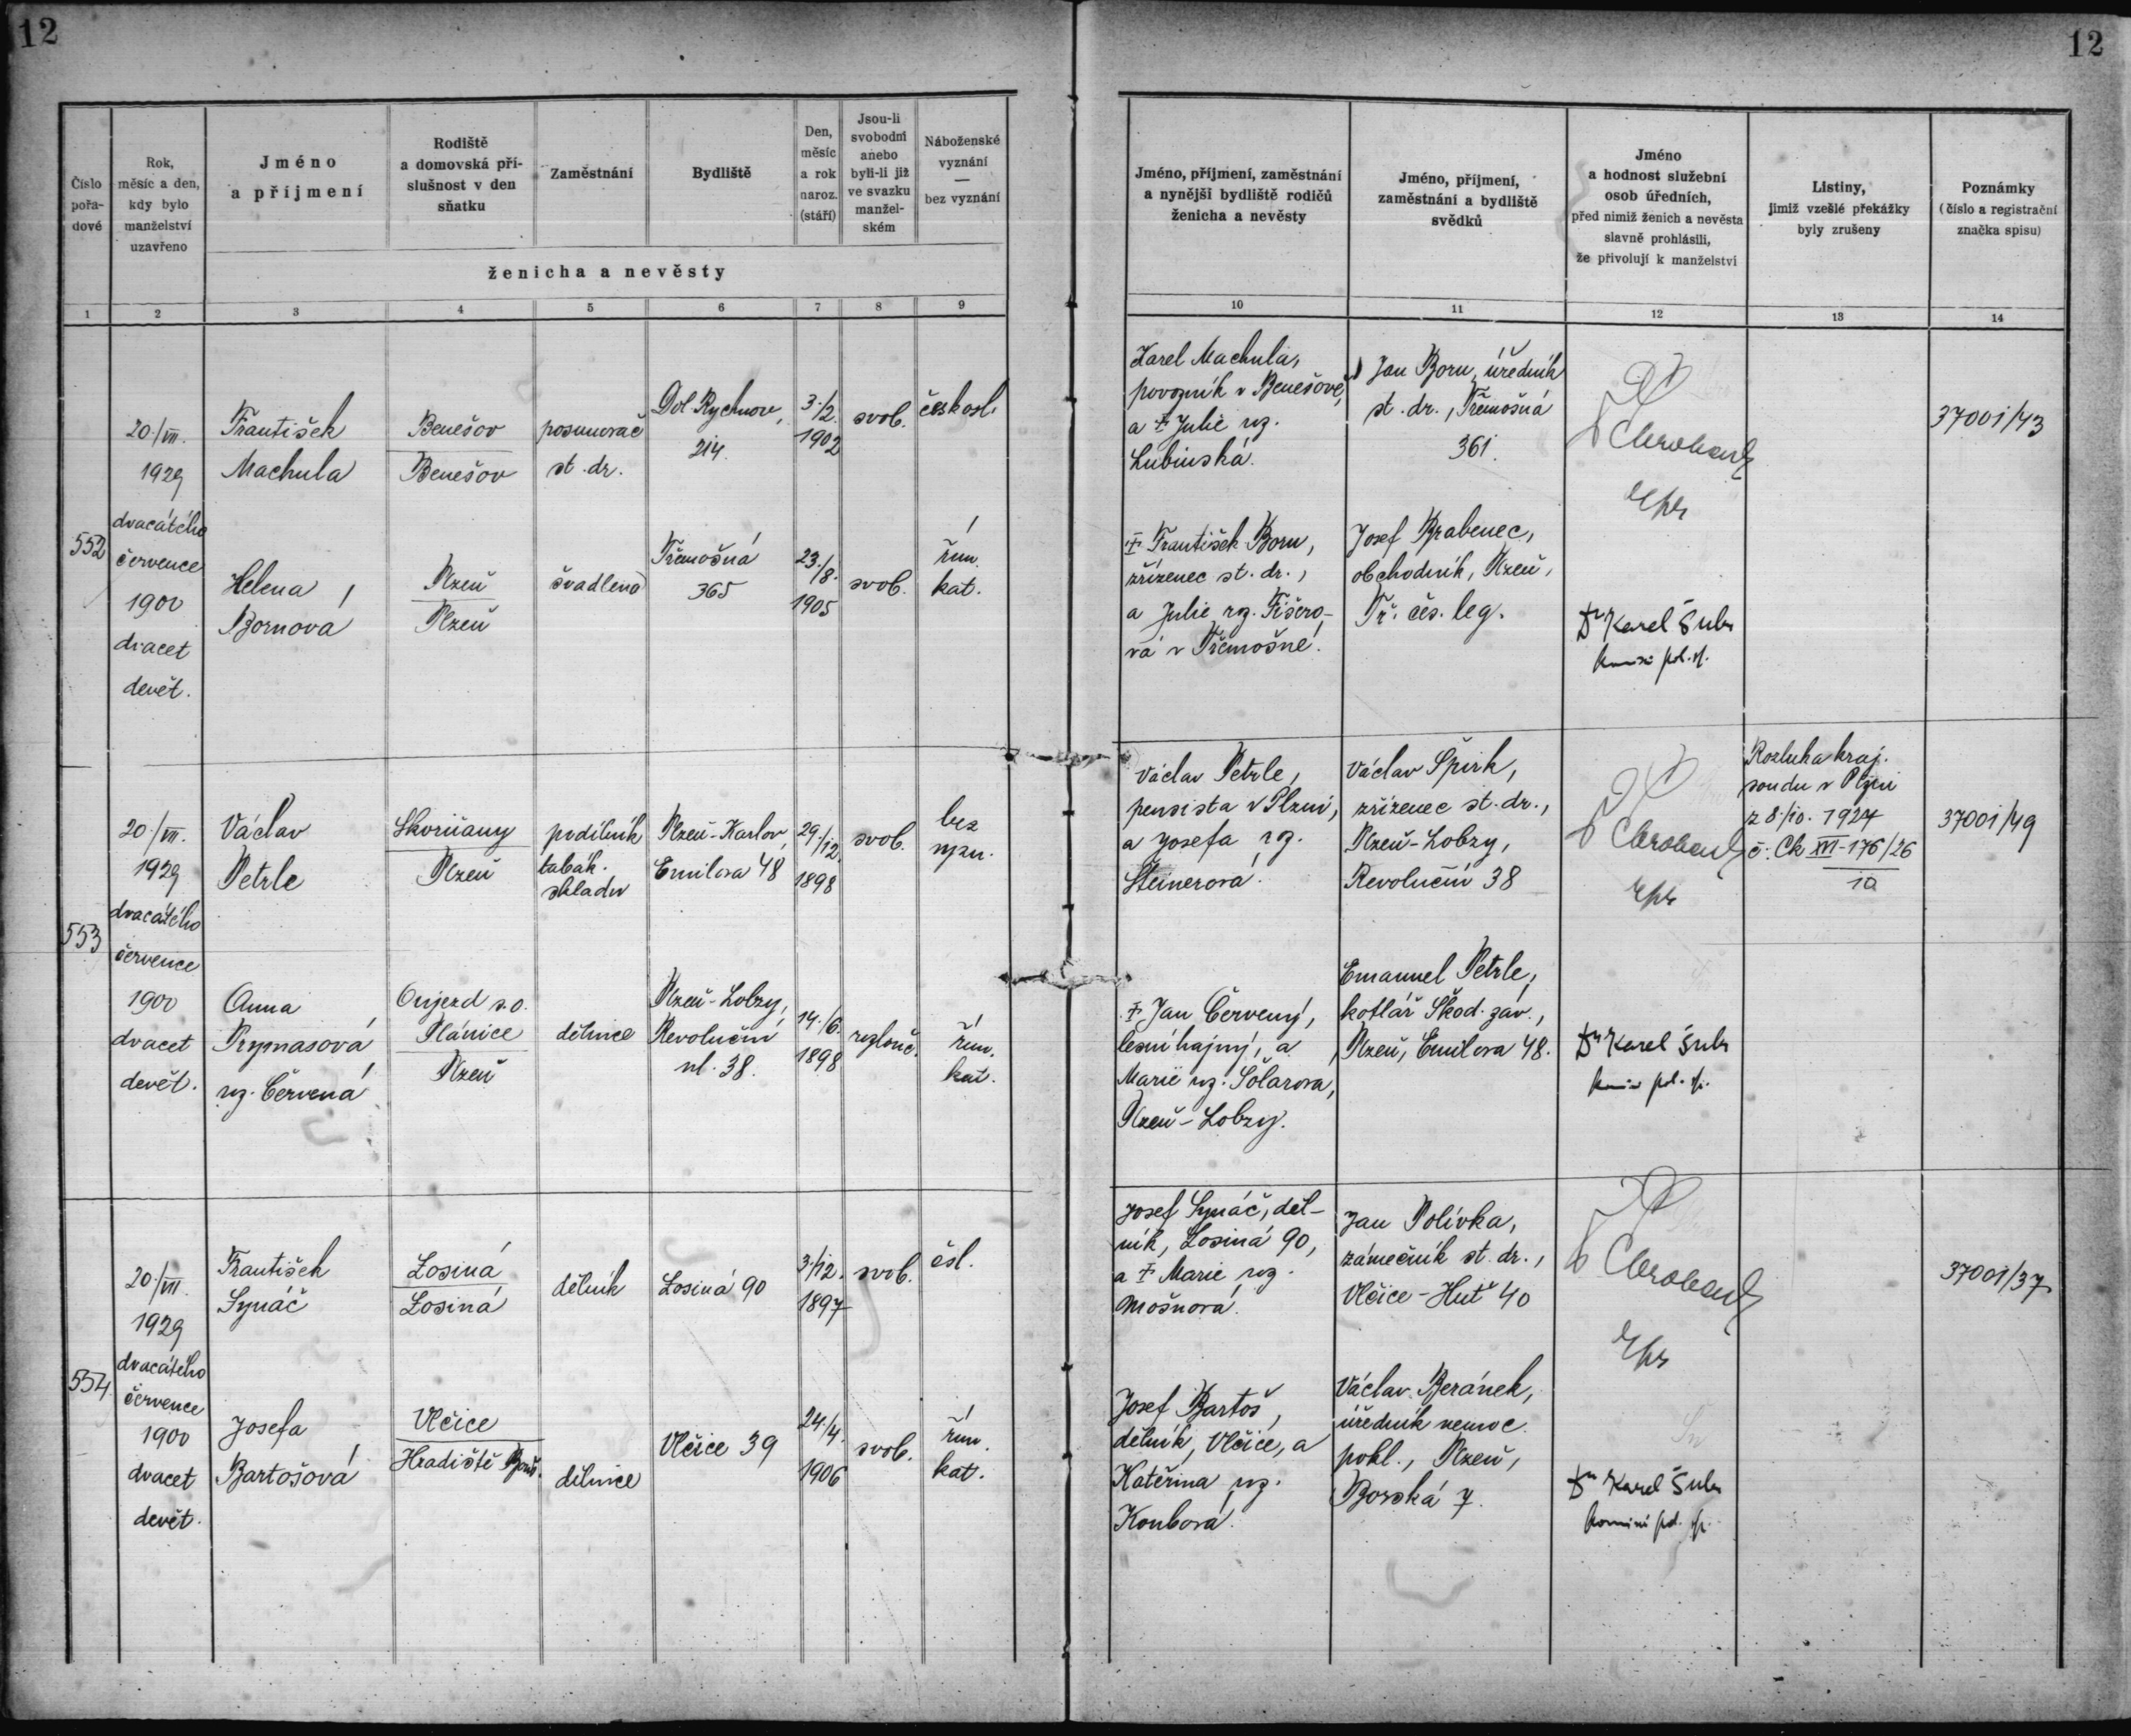 12
12
Číslo
pořa-
dové
Rok,
měsíc a den,
kdy bylo
manželství
uzavřeno
Jméno
a příjmení
Rodiště
a domovská pří-
slušnost v den
sňatku
Zaměstnání
Bydliště
Den,
měsíc
a rok
naroz.
(stáří)
Jsou-li
svobodni
anebo
byli-li již
ve svazku
manžel-
ském
Náboženské
vyznání
—
bez vyznání
ženicha a nevěsty
1 2 3 4 5 6 7 8 9
Jméno, příjmení, zaměstnání
a nynější bydliště rodičů
ženicha a nevěsty
Jméno, příjmení,
zaměstnání a bydliště
svědků
Jméno
a hodnost služební
osob úředních,
před nimiž ženich a nevěsta
slavně prohlásili,
že přivolují k manželství
Listiny,
jimiž vzešlé překážky
byly zrušeny
Poznámky
(číslo a registrační
značka spisu)
10 11 12 13 14
552
20./VII.
1929
dvacátého
července
1900
dvacet
devět.
František
Machula
Benešov
Benešov
posunovač
st. dr.
Dol. Rychnov,
214.
3./2.
1902
svob.
českosl.
Helena
Bornová
Plzeň
Plzeň
švadlena
Třemošná
365
23./8.
1905
svob.
řím.
kat.
Karel Machula,
povozník v Benešově,
a † Julie roz.
Lubinská.
Jan Born, úředník
st. dr., Třemošná
361.
37001/43
† František Born,
zřízenec st. dr.,
a Julie roz. Fišero-
vá v Třemošné.
Josef Brabenec,
obchodník, Plzeň,
Tř. čes. leg.
Dr Karel Šubr
553
20./VII.
1929
dvacátého
července
1900
dvacet
devět.
Václav
Petrle
Skvrňany
Plzeň
podílník
tabák.
skladu
Plzeň-Karlov,
Emilova 48
29./12.
1898
svob.
bez
vyzn.
Anna
Prymasová
roz. Červená
Oujezd s. o.
Plánice
Plzeň
dělnice
Plzeň-Lobzy,
Revoluční
ul. 38.
14./6.
1898
rozlouč.
řím.
kat.
Václav Petrle,
pensista v Plzni,
a Josefa roz.
Steinerová.
Václav Špirk,
zřízenec st. dr.,
Plzeň-Lobzy,
Revoluční 38
Rozluka kraj.
soudu v Plzni
z 8./10. 1924
č. Ck XIII-176/26
10
37001/49
† Jan Červený,
lesní hajný, a
Marie roz. Solarova,
Plzeň-Lobzy.
Emanuel Petrle,
kotlář Škod. záv.,
Plzeň, Emilova 48.
Dr Karel Šubr
554
20./VII.
1929
dvacátého
července
1900
dvacet
devět.
František
Synáč
Losiná
Losiná
dělník
Losiná 90
3./12.
1897
svob.
čsl.
Josefa
Bartošová
Vlčice
Hradiště
dělnice
Vlčice 39
24./4.
1906
svob.
řím.
kat.
Josef Synáč, děl-
ník, Losiná 90,
a † Marie roz.
Mošnová.
Jan Polívka,
zámečník st. dr.,
Vlčice-Huť 40
37001/37
Josef Bartoš,
dělník, Vlčice, a
Kateřina roz.
Koubová.
Václav Beránek,
úředník nemoc.
pokl., Plzeň,
Borská 7.
Dr Karel Šubr